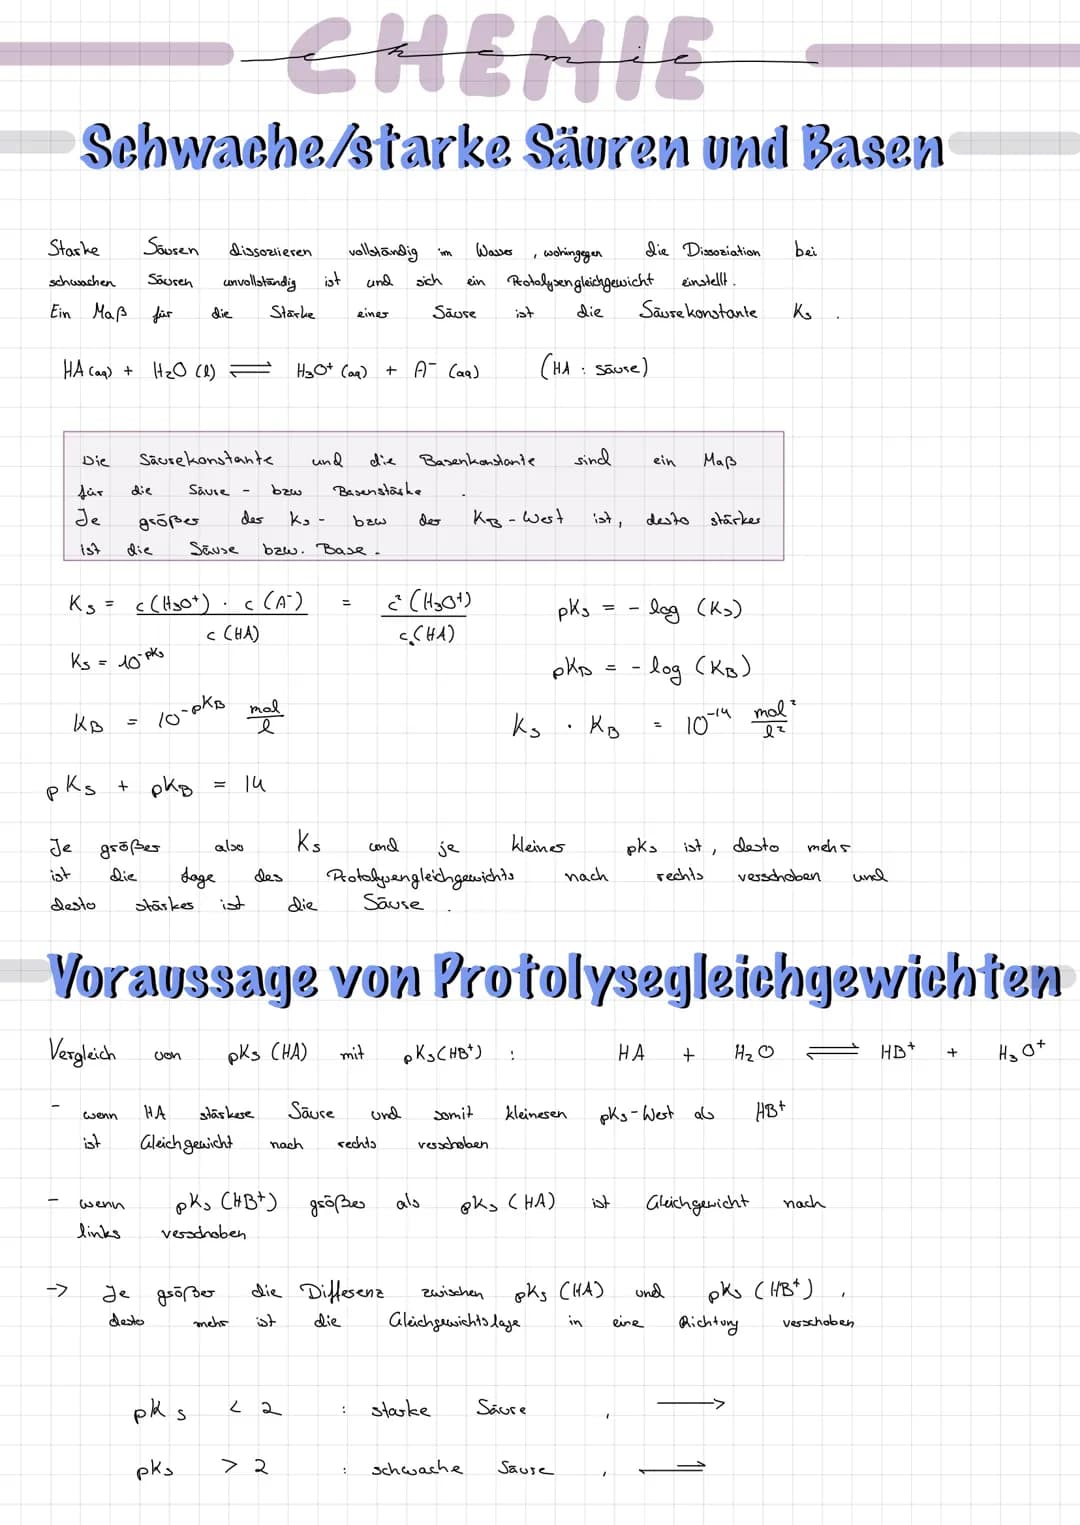 CHEMIE
chemie
Schwache/starke Säuren und Basen
Starke Säuren dissoziieren vollständig im Wasser, wohingegen die Dissoziation bei
schwachen Säuren unvollständig ist und sich ein Protolysengleichgewicht einstellt.
Ein Maß für die Stärke einer Säure ist die Säurekonstante Ks.
HA (aq) + H₂O (l) ⇌ H₃O⁺ (aq) + A⁻ (aq) (HA : Säure)
Die Säurekonstante und die Basenkonstante sind ein Maß
für die Säure - bzw Basenstärke.
Je größer der Ks - bzw der KB - Wert ist, desto stärker
ist die Säure bzw. Base.
Ks = c(H₃O⁺) · c(A⁻) / c(HA) = c²(H₃O⁺) / c(HA) pKs = - log (Ks)
Ks = 10^-pKs pKB = - log (KB)
KB = 10^-pKB mol/l Ks · KB = 10⁻¹⁴ mol²/l²
pKs + pKB = 14
Je größer also Ks und je kleiner pKs ist, desto mehr
ist die Lage des Protolysengleichgewichts nach rechts verschoben und
desto stärker ist die Säure.
Voraussage von Protolysegleichgewichten
Vergleich von pKs (HA) mit pKs (HB⁺) : HA + H₂O ⇌ HB⁺ + H₃O⁺
- wenn HA stärkere Säure und somit kleineren pKs-Wert als HB⁺
ist Gleichgewicht nach rechts verschoben
- wenn pKs (HB⁺) größer als pKs (HA) ist Gleichgewicht nach
links verschoben
-> Je größer die Differenz zwischen pKs (HA) und pKs (HB⁺),
desto mehr ist die Gleichgewichtslage in eine Richtung verschoben
pKs < 2 : starke Säure, →
pKs > 2 : schwache Säure, ⇌